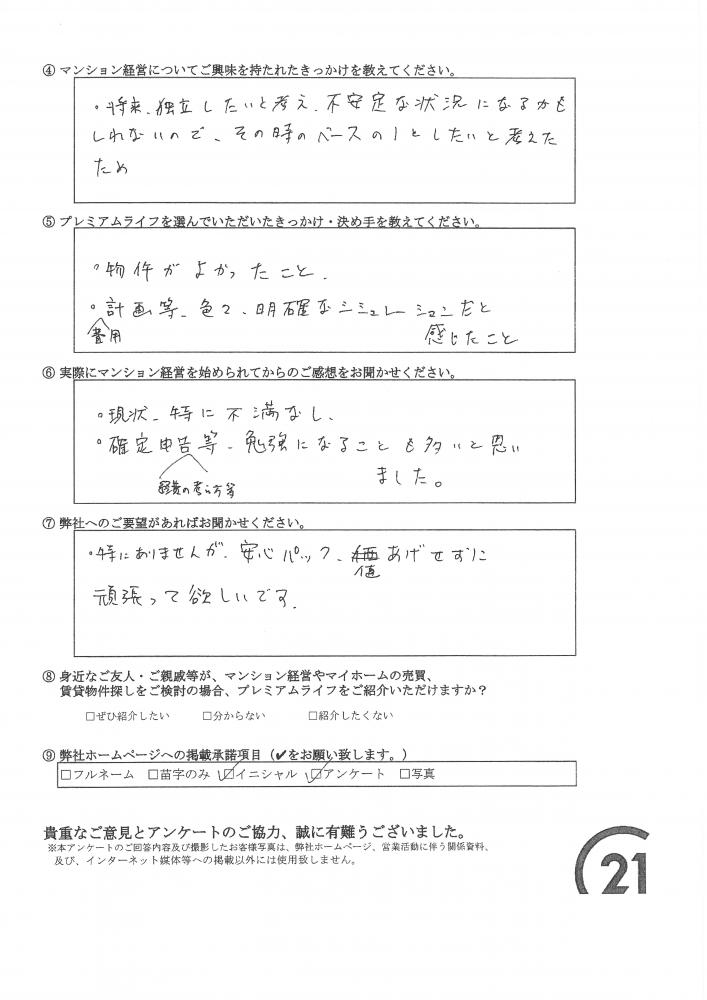 ④ マンション経営についてご興味を持たれたきっかけを教えてください。
・将来、独立したいと考え、不安定な状況になるかも
しれないので、その時のベースの1としたいと考えた
ため
⑤ プレミアムライフを選んでいただいたきっかけ・決め手を教えてください。
・物件がよかったこと、
・計画等、色々、明確なシミュレーションだと
費用
感じたこと
⑥ 実際にマンション経営を始められてからのご感想をお聞かせください。
・現状、特に不満なし、
・確定申告等、勉強になることも多いと思い
経費の考え方等
ました。
⑦ 弊社へのご要望があればお聞かせください。
・特にありませんが、安心パック、値あげせずに
頑張って欲しいです。
⑧ 身近なご友人・ご親戚等が、マンション経営やマイホームの売買、
賃貸物件探しをご検討の場合、プレミアムライフをご紹介いただけますか？
□ぜひ紹介したい □分からない □紹介したくない
⑨ 弊社ホームページへの掲載承諾項目（✔をお願い致します。）
□フルネーム □苗字のみ ☑イニシャル ☑アンケート □写真
貴重なご意見とアンケートのご協力、誠に有難うございました。
※本アンケートのご回答内容及び撮影したお客様写真は、弊社ホームページ、営業活動に伴う関係資料、
及び、インターネット媒体等への掲載以外には使用致しません。
21